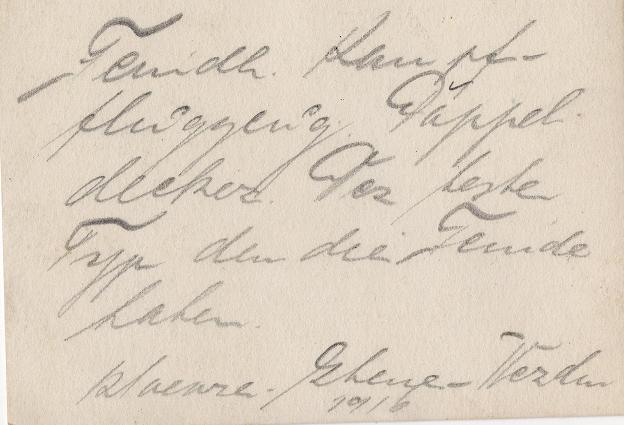 Feindl. Kampf-
flugzeug. Doppel-
decker. Der beste
Typ den die Feinde
haben.
Woevre-Ebene-Verdun
1916